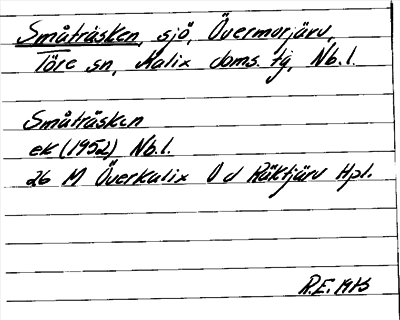 Småträsken, sjö, Övermorjärv,
Töre sn, Kalix doms. tg, Nb. l.
Småträsken
ek (1952) Nb. l.
26 M Överkalix O d Räktjärv Hpl.
R.E. 1973